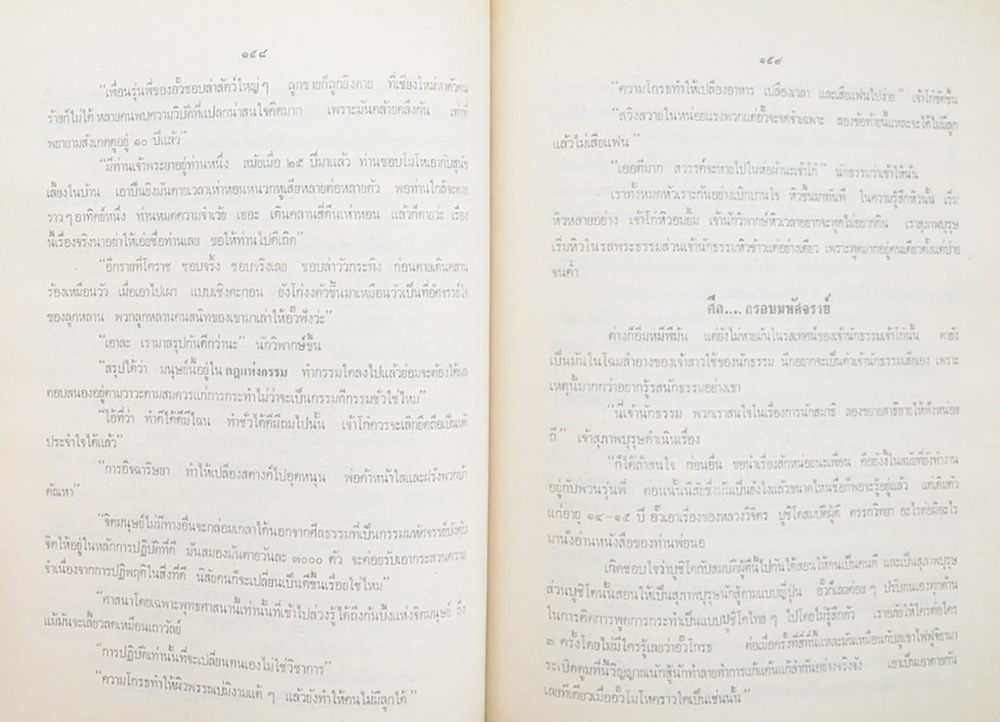 ๑๕๘
"เพื่อนรุ่นพี่ของอั๊วชอบล่าสัตว์ใหญ่ๆ ลูกชายก็ถูกยิงตาย ที่เชียงใหม่หาตัวคน
ร้ายก็ไม่ได้ หลายคนพบความวิบัติที่แปลกน่าสนใจคิดมาก เพราะมันคล้ายคลึงกัน เท่าที่
พยายามสังเกตดูอยู่ ๑๐ ปีแล้ว"
"มีท่านเจ้าพระยาอยู่ท่านหนึ่ง สมัยเมื่อ ๒๕ ปีมาแล้ว ท่านชอบโมโหเอากับสุนัข
เลี้ยงในบ้าน เอาปืนยิงมันตายเวลาเห่าหอนหนวกหูเสียหลายต่อหลายตัว พอท่านใกล้จะตาย
ราวๆ อาทิตย์หนึ่ง ท่านหมดความจำเว้ย เยอะ เดินคลานสี่ตีนเห่าหอน แล้วก็ตายว่ะ เรื่อง
นี้เรื่องจริงนาอย่าให้เอ่ยชื่อท่านเลย ขอให้ท่านไปดีเถิด"
"อีกรายที่โคราช ชอบจริ้ง ชอบจริงเลย ชอบล่าวัวกระทิง ก่อนตายเดินคลาน
ร้องเหมือนวัว เมื่อเอาไปเผา แบบเชิงตะกอน ยังโก่งงงตัวขึ้นมาเหมือนวัวเป็นที่อัศจรรย์ใจ
ของลูกหลาน พวกลูกหลานคนสนิทของเขามาเล่าให้อั๊วฟังว่ะ"
"เอาละ เรามาสรุปกันดีกว่านะ" นักวิพากษ์ขึ้น
"สรุปได้ว่า มนุษย์นี้อยู่ใน กฎแห่งกรรม ทำกรรมใดลงไปแล้วย่อมจะต้องได้ผล
ตอบสนองอยู่ตามวาระตามสมควรแก่การกระทำไม่ว่าจะเป็นกรรมดีกรรมชั่วใช่ไหม"
"ไอ้ที่ว่า ทำดีได้ดีมีไฉน ทำชั่วได้ดีมีถมไปนั้น เจ้าโก้ควรจะเลิกยึดถือเป็นคติ
ประจำใจได้แล้ว"
"การอิจฉาริษยา ทำให้เปลืองสตางค์ไปอุดหนุน พ่อค้าหน้าใสและฝรั่งพวกบ้า
ตัณหา"
"จิตมนุษย์ไม่มีทางอื่นจะกล่อมเกลาได้นอกจากศีลธรรมที่เป็นกรรมมหัศจรรย์บังคับ
จิตให้อยู่ในหลักการปฏิบัติที่ดี มันสมองมันตายวันละ ๓๐๐๐ ตัว จะค่อยรับเอากระแสความ
จำเนื่องจากการปฏิพฤติในสิ่งที่ดี นิสัยคนก็จะเปลี่ยนเป็นดีขึ้นเรื่อยใช่ไหม"
"ศาสนาโดยเฉพาะพุทธศาสนานี้เท่านั้นที่เข้าไปล่วงรู้ได้ถึงก้นบึ้งแห่งจิตมนุษย์ ถึง
แม้มันจะเลี้ยวลดเหมือนเถาวัลย์
"การปฏิบัติเท่านั้นที่จะเปลี่ยนตนเองไม่ใช่วิชาการ"
"ความโกรธทำให้ผิวพรรณบ่มิงามแต้ ๆ แล้วยังทำให้คนไม่มีลูกได้"
๑๕๙
"ความโกรธทำให้เปลืองอาหาร เปลืองเวลา และเสียแฟนไปง่าย" เจ้าโก้ขัดขึ้น
"ลิวิงสวายในหน่อยแรงพวกแต่อั๊วจะจดจำเฉพาะ สองข้อท้ายนี้แหละจะได้ไม่มีลูก
แล้วไม่เสียแฟน"
"เออดีมาก สวรรค์จะหายไปในห่อผ้านะเจ้าโก้" นักธรรมว่าเข้าให้นั่น
เราทั้งหมดหัวเราะกันอย่างเบิกบานใจ หิวขึ้นมาทันที ในความรู้สึกหิวนั้น เริ่ม
หิวหลายอย่าง เจ้าโก้หิวอมยิ้ม เจ้านักวิพากษ์หิวเวลาอยากจะพูดไม่อยากกิน เราสุภาพบุรุษ
เริ่มหิวในรสพระธรรมส่วนเจ้านักธรรมหิวข้าวแต่อย่างเดียว เพราะพูดมากอยู่คนเดียวตั้งแต่บ่าย
จนค่ำ
ศีล.... กรอบมหัศจรรย์
ต่างก็อิ่มหมีพีมัน แต่ยังไม่หายมันในรสเทศน์ของเจ้านักธรรมเจ้าโก้นั้น ตายัง
เป็นมันในโฉมสำอางของเจ้าสาวใช้ของนักธรรม นึกอยากจะเป็นตัวเจ้านักธรรมเสียเอง เพราะ
เหตุนี้มากกว่าอยากรู้รสนักธรรมอย่างเขา
"นี่เจ้านักธรรม พวกเราสนใจในเรื่องการนั่งสมาธิ ลองขยายสาธิยายให้ฟังหน่อย
ถี" เจ้าสุภาพบุรุษดำเนินเรื่อง
"ก็ได้ถ้าสนใจ ก่อนอื่น ขอนำเรื่องสักหน่อยนะเพื่อน คืออั๊วนี้ในสมัยที่ยังทำงาน
อยู่กับพวนรุ่นพี่ ตอนนั้นนิสัยซึ่งมันเป็นยังไงแล้วขนาดไหนชื่อก็พอจะรู้อยู่แล้ว แต่เดิมตัว
แก่อายุ ๑๔–๑๕ ปี อั๊วเอาเรื่องของหลวงวิจิตร บูชิโดสมบัติผู้ดี ตรรกวิทยา อะไรต่อมิอะไร
มานั่งอ่านหนังสือของท่านพ่อนอ
เกิดชอบใจว่าบูชิโดกับสมบัติผู้ดีนี้ไปกันได้สอนให้คนเป็นคนดี และเป็นสุภาพบุรุษ
ส่วนบูชิโดนั้นสอนให้เป็นสุภาพบุรุษนักสู้ตามแบบญี่ปุ่น อั๊วก็เลยค่อย ๆ ปรับตนเองทุกด้าน
ในการคิดการพูดการกระทำเป็นแบบบูชิโดไทย ๆ ไปโดยไม่รู้สึกตัว เราอภัยให้ใครต่อใคร
๓ ครั้งโดยไม่มีใครรู้เลยว่าอั๊วโกรธ ต่อเมื่อครั้งที่สี่นี่แหละมันเหมือนกับภูเขาไฟฟูจิยามา
ระเบิดตูมที่นี้วิญญาณนักสู้นักทำลายทำการแก้แค้นแก้ลำกันอย่างจริงจัง เอาเป็นเอาตายกัน
เลยทีเดียวเมื่ออั๊วโมโหคราวใดเป็นเช่นนั้น"